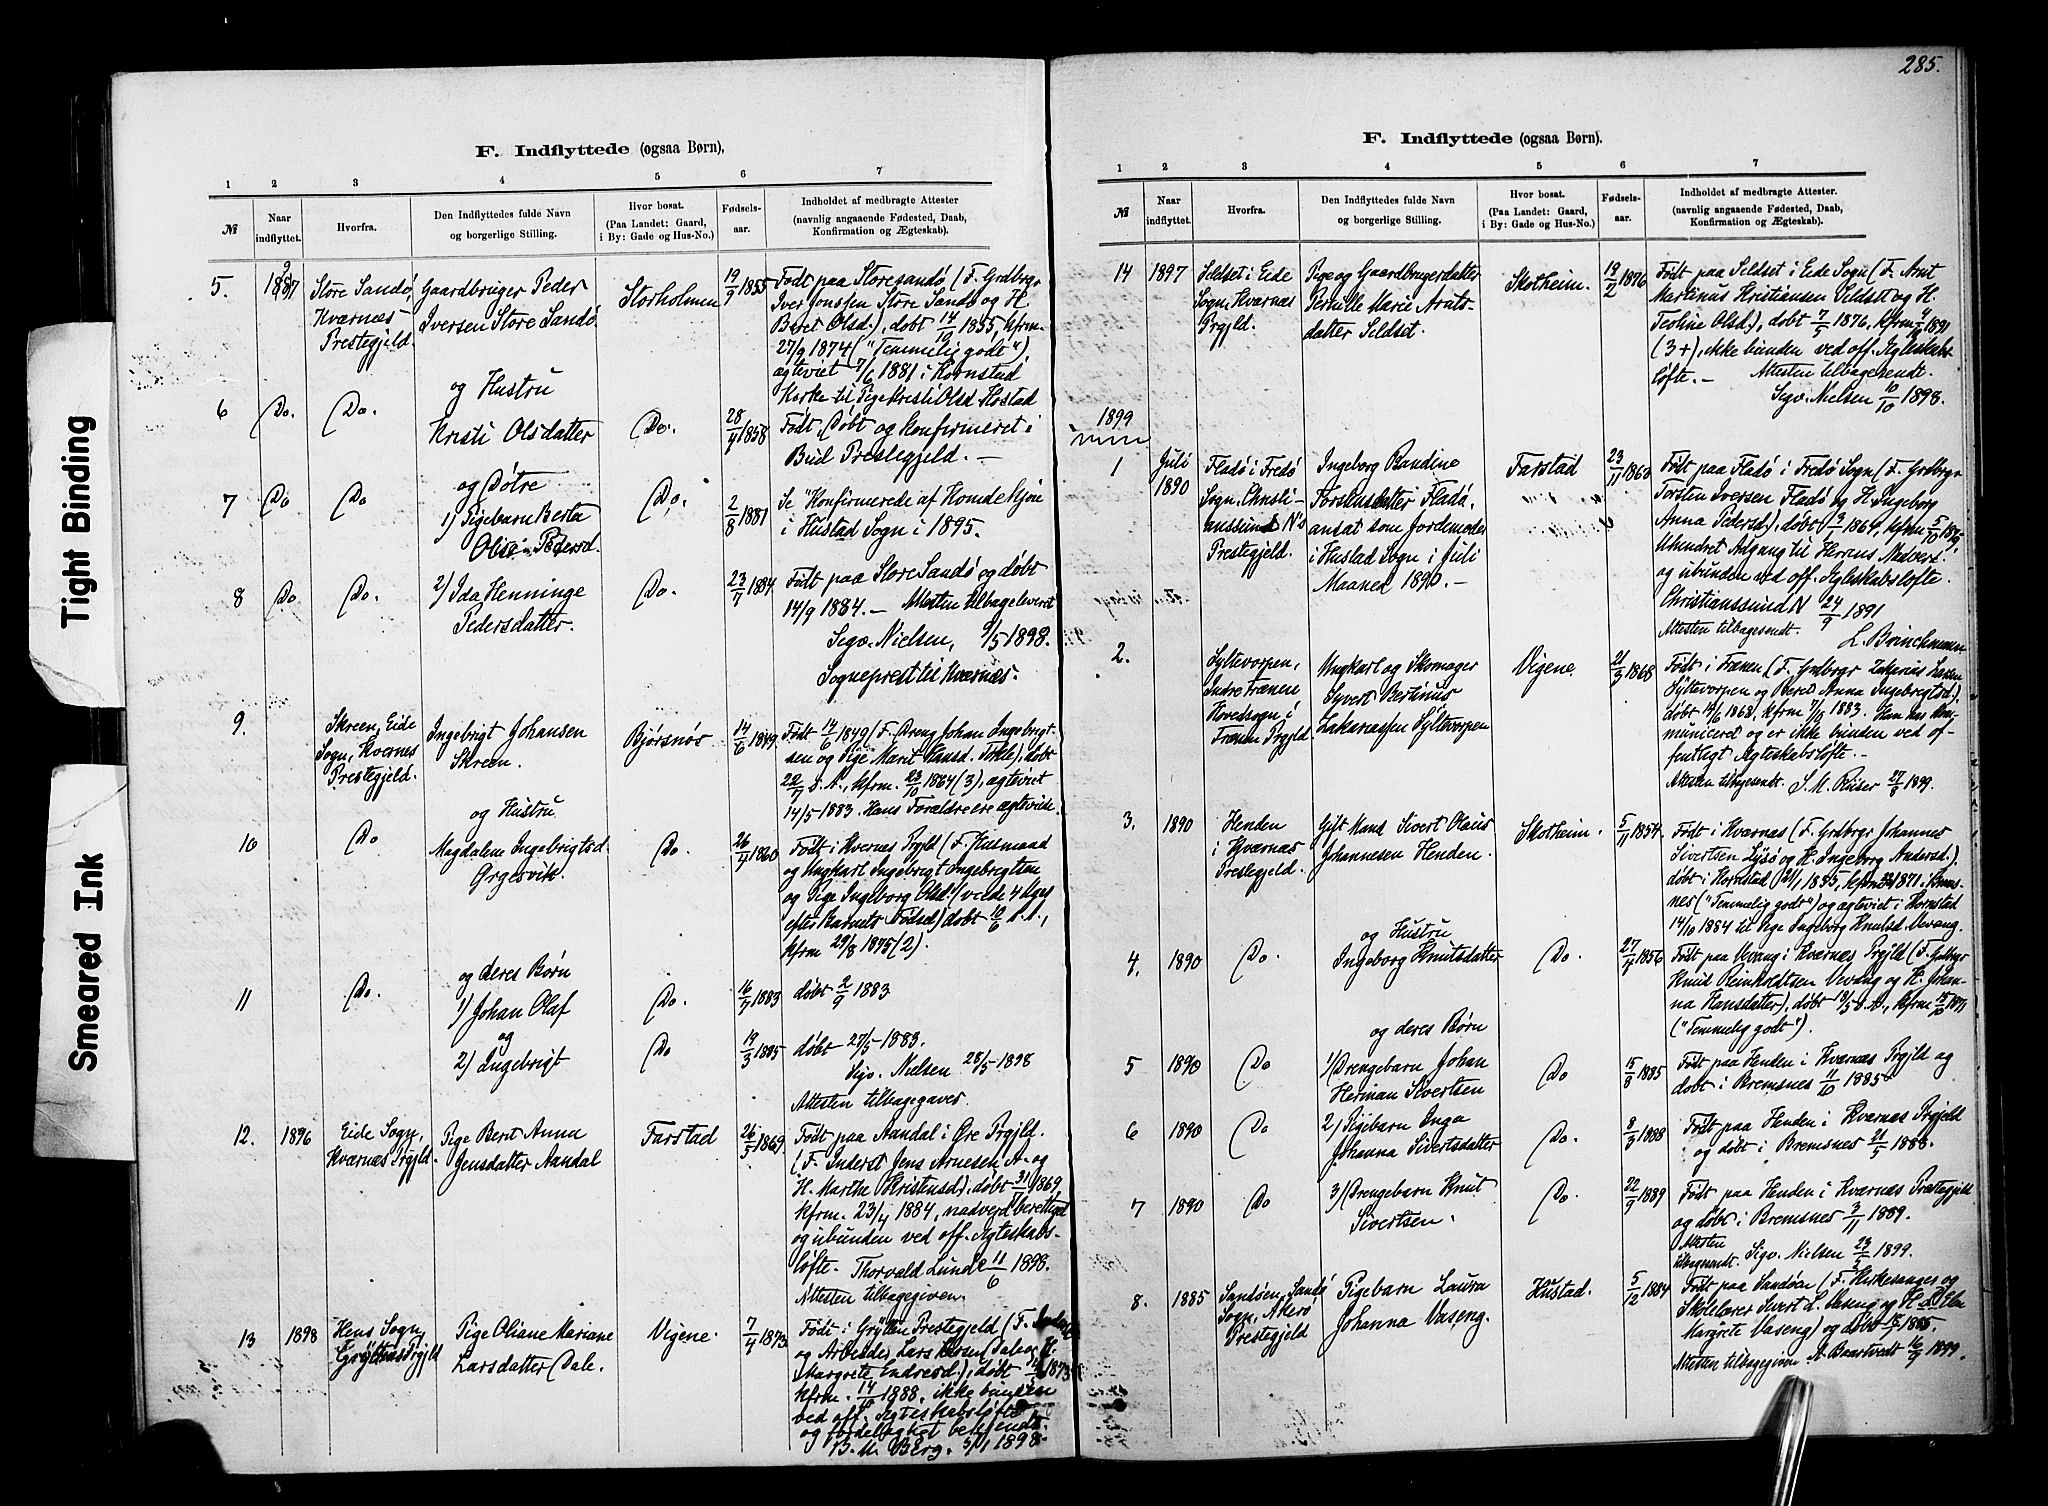 Tight Binding
Smeared Ink
F. Indflyttede (ogsaa Børn),
1 2 3 4 5 6 7
№
Naar indflyttet.
Hvorfra.
Den Indflyttedes fulde Navn
og borgerlige Stilling.
Hvor bosat.
(Paa Landet: Gaard,
i By: Gade og Hus-No.)
Fødsels-
aar.
Indholdet af medbragte Attester
(navnlig angaaende Fødested, Daab,
Konfirmation og Ægteskab).
5. Store Sandø,
Kværnæs
Prestegjeld.
Gaardbruger Peder
Iversen Store Sandø
Storholmen
19/9 1855
Født paa Storesandø (F. Grdbrgr
Iver Jonssen Store Sandø og H.
Beret Olsd.), døbt 14/10 1855, kfrm.
27/9 1874 ("Temmelig godt"),
ægteviet 7/6 1881 i Kornstad
Kirke til Pige Kristi Olsd. Hostad
6 Do. Do.
og Hustru
Kristi Olsdatter
Do.
28/4 1858
Født, Døbt og Konfirmeret i
Bud Prestegjeld. —
7 Do Do
og Døtre
1) Pigebarn Berta
Oline Pedersd.
Do.
2/8 1881
Se "Konfirmerede af Homdekjøn
i Hustad Sogn i 1895.
8 Do Do.
2) Ida Henninge
Pedersdatter.
Do.
23/7 1884
Født paa Store Sandø og døbt
14/9 1884. — Attesten tilbageleveret
Segv. Nielsen, 6/5 1898.
Sogneprest til Kværnæs.
9. Skreen, Eide
Sogn, Kvernes
Prestegjeld.
Ingebrigt Johansen
Skreen.
Bjørsnøs
14/6 1849
Født 14/6 1849 (F. Dreng Johan Ingebrigt-
sen og Pige Marit Hansd. Tokle), døbt
22/7 s. A., kfrm. 23/10 1864 (3), ægteviet
14/5 1883. Hans Forældre ere ægteviede
10 Do
og Hustru
Magdalene Ingebrigtsd.
Ørgesvik.
Do.
26/4 1860
Født i Kvernes Prgjld (F. Husmand
og Ungkarl Ingebrigt Ingebrigtsen
og Pige Ingeborg Olsd. (veide 4 Uger
efter Barnets Fødsel) døbt 10/6 s. A.,
kfrm 29/8 1875 (2).
11 Do.
og deres Børn
1) Johan Olaf
Do.
16/7 1883
døbt 2/9 1883
og
2) Ingebrigt
Do
19/3 1885
døbt 27/5 1883.
Sigv. Nielsen 28/5 1898
Attesten tilbagegaves.
12. 1896
Eide Sogn,
Kværnæs Prgjld.
Pige Berit Anna
Jensdatter Aandal
Farstad
26/5 1869
Født paa Aandal i Øre Prgjld.
(F. Inderst Jens Arnesen A. og
H. Marthe Kristensd.), døbt 1869
kfrm. 23/4 1884, nadverdberettiget
og ubunden ved off. Ægteskabs-
løfte. Thorvald Lunde 11/6 1898.
Attesten tilbagegiven.
13 1898
Hens Sogn,
Grytten Prgjld
Pige Oliane Mariane
Larsdatter Dale.
Vigene.
7/4 1873
Født i Grytten Prestegjeld (F.
og Arbeider Lars Dale og H.
Margrete Endresd.), døbt 1873
kfrm. 14/10 1888, ikke bunden
ved off. Ægteskabsløfte
og fordelagtigt bekjendt.
B. M. Berg. 1898
285.
F. Indflyttede (ogsaa Børn).
1 2 3 4 5 6 7
№
Naar indflyttet.
Hvorfra.
Den Indflyttedes fulde Navn
og borgerlige Stilling.
Hvor bosat.
(Paa Landet: Gaard,
i By: Gade og Hus-No.)
Fødsels-
aar.
Indholdet af medbragte Attester.
(navnlig angaaende Fødested, Daab,
Konfirmation og Ægteskab).
14 1897
Seldset i Eide
Sogn, Kværnæs
Prgjld.
Pige og Gaardbrugerdatter
Pernille Marie Arnts-
datter Seldset.
Skotheim.
19/2 1876
Født paa Seldset i Eide Sogn (F. Arnt
Martinus Kristiansen Seldset og H.
Teoline Olsd.), døbt 7/5 1876, kfrm 1891
(3+), ikke bunden ved off. Ægteskabs-
løfte. — Attesten tilbagesendt.
Segv. Nielsen 10/10 1898.
1899
1 Juli
1890
Fladø i Fredø
Sogn, Christi-
anssund N's
Prestegjeld.
Ingeborg Bandine
Torstensdatter Fladø,
ansat som Jordemoder
i Hustad Sogn i Juli
Maaned 1890. —
Farstad
23/11 1860
Født paa Fladø i Fredø Sogn (F. Grdbrgr
Torsten Iversen Fladø og H. Ingeborg
Anna Pedersd.), døbt 1861, kfrm 5/10 1875,
Uhindret Adgang til Herrens Nadvers
og ubunden ved off. Ægteskabsløfte.
Christianssund N 24/9 1891
Attesten tilbagesendt. L. Brinchmann
2.
Syltevorpen,
Indre Frænen
Hovedsogn i
Frænen Prgjld
Ungkarl og Skomager
Syvert Bertinus
Zakariassen Syltevorpen
Vigene.
21/3 1868
Født i Frænen (F. Grdbrgr Zakarias Larsen
Syltevorpen og Beret Anna Ingebrigtsd.),
døbt 14/6 1868, kfrm 7/10 1883. Han har kom-
municeret og er ikke bunden ved of-
fentligt Ægteskabsløfte. —
Attesten tilbagesendt. S. M. Riiser 27/8 1899.
3. 1890
Henden
i Kværnæs
Prestegjeld.
Gift Mand Sivert Olaus
Johannesen Henden.
Skotheim.
5/11 1854
Født i Kværnæs (F. Grdbrgr Johannes
Sivertsen Lysø og H. Ingeborg Andersd.).
døbt i Kornstad 21/1 1855, kfrm 1871 i Brems-
nes ("Temmelig godt") og ægteviet i Kornstad
14/10 1884 til Pige Ingeborg Knutsd. Vevang.
4. 1890 Do.
og Hustru
Ingeborg Knutsdatter
Do.
27/4 1856
Født paa Vevang i Kværnæs Prgjld (F. Grdbrgr
Knud Reinholdtsen Vevang og H. Johan-
na Hansdatter), døbt 18/5 s. A., kfrm 15/10 1871
("Temmelig godt").
5 1890 Do
og deres Børn
1) Drengebarn Johan
Herman Sivertsen
Do
15/8 1885
Født paa Henden i Kværnæs Prgjld og
døbt i Bremsnes 11/10 1885
6 1890 Do
2) Pigebarn Inga
Johanna Sivertsdatter
Do.
8/3 1888
Født paa Henden i Kværnæs Prgjeld
og døbt i Bremsnes 21/5 1888.
7 1890 Do
3) Drengebarn Knut
Sivertsen.
Do.
22/9 1889
Født paa Henden i Kværnæs Præstegjeld
og døbt i Bremsnes 3/11 1889.
Attesten
tilbagesendt. Sigv. Nielsen 23/3 1899.
8. 1885
Sandøen, Sandø
Sogn, Akerø
Prestegjeld
Pigebarn Laura
Johanna Vaseng.
Hustad.
5/12 1884
Født paa Sandøen (F. Kirkesanger og
Skolelærer Sivert L. Vaseng og H.
Margrete Vaseng) og døbt 1885.
Attesten tilbagegiven A. Baarstvedt 16/9 1899.